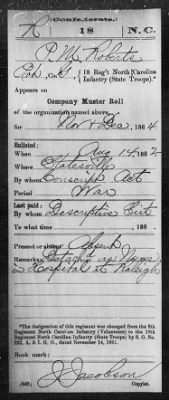 (Confederate.)
R 18 N.C.
P. M. Roberts
Pvt, Co. G, { 18 Reg't North Carolina Infantry (State Troops).
Appears on
Company Muster Roll
of the organization named above,
for Nov & Dec, 1864
Enlisted:
When Aug 14, 1862
Where Statesville
By whom Conscript Act
Period War
Last paid:
By whom Descriptive List
To what time , 186
Present or absent Absent
Remarks: Detached as Nurse
in Hospital at Raleigh
*The designation of this regiment was changed from the 8th
Regiment North Carolina Infantry (Volunteers) to the 18th
Regiment North Carolina Infantry (State Troops) by S. O. No.
222, A. & I. G. O., dated November 14, 1861.
Book mark:
J. Jacobson
(642) Copyist.